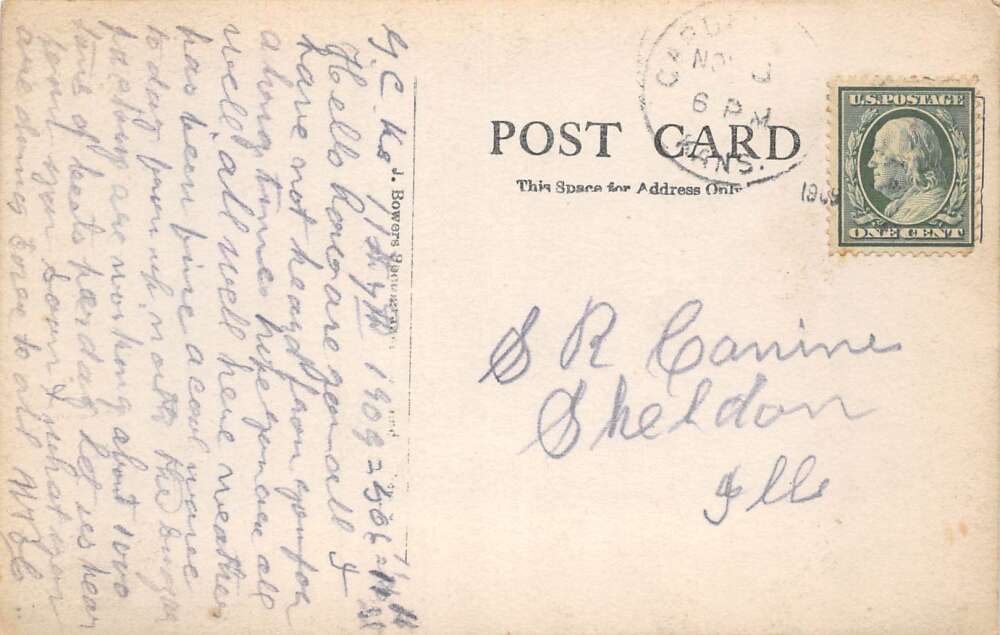 G. C. Ks
7th 1909
Hello how are you all I
have not heard from you for
a long time hope you are all
well, all well here weather
has been fine a cool wave
to day from up north the Sugar
factory are working about 1000
tons of beets per day let us hear
from you soon & what you
are doing love to all
POST CARD
This Space for Address Only
J. Bowers
NO
6 PM
KANS.
1909
U.S. POSTAGE
ONE CENT
S R Canine
Sheldon
Ills